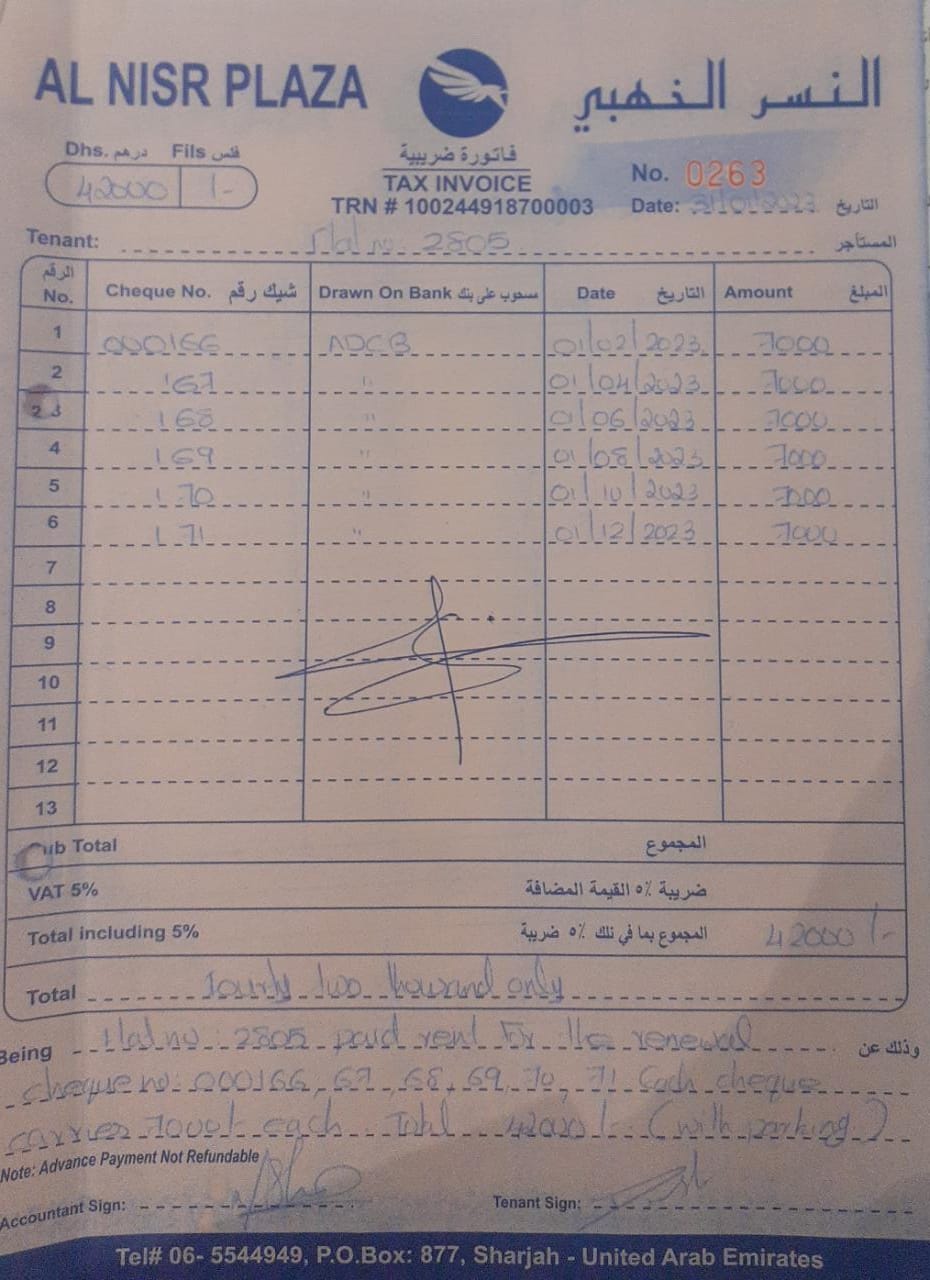 AL NISR PLAZA
النسر الذهبي
Dhs. درهم Fils فلس
42000 /-
فاتورة ضريبية
TAX INVOICE
TRN # 100244918700003
No. 0263
Date: 31/01/2023 التاريخ
Tenant: Flat no. 2805 المستأجر
الرقم No. Cheque No. شيك رقم Drawn On Bank مسحوب على بنك Date التاريخ Amount المبلغ
1 000166 ADCB 01/02/2023 7000
2 167 " 01/04/2023 7000
3 168 " 01/06/2023 7000
4 169 " 01/08/2023 7000
5 170 " 01/10/2023 7000
6 171 " 01/12/2023 7000
7
8
9
10
11
12
13
Sub Total المجموع
VAT 5% ضريبة ٥٪ القيمة المضافة
Total including 5% المجموع بما في ذلك ٥٪ ضريبة 42000/-
Total Fourty two thousand only
Being Flat no: 2805 paid rent For the renewal وذلك عن
cheque no: 000166, 67, 68, 69, 70, 71 Each cheque
carries 7000/- each. Total 42000/- (with parking)
Note: Advance Payment Not Refundable
Accountant Sign: Tenant Sign:
Tel# 06- 5544949, P.O.Box: 877, Sharjah - United Arab Emirates